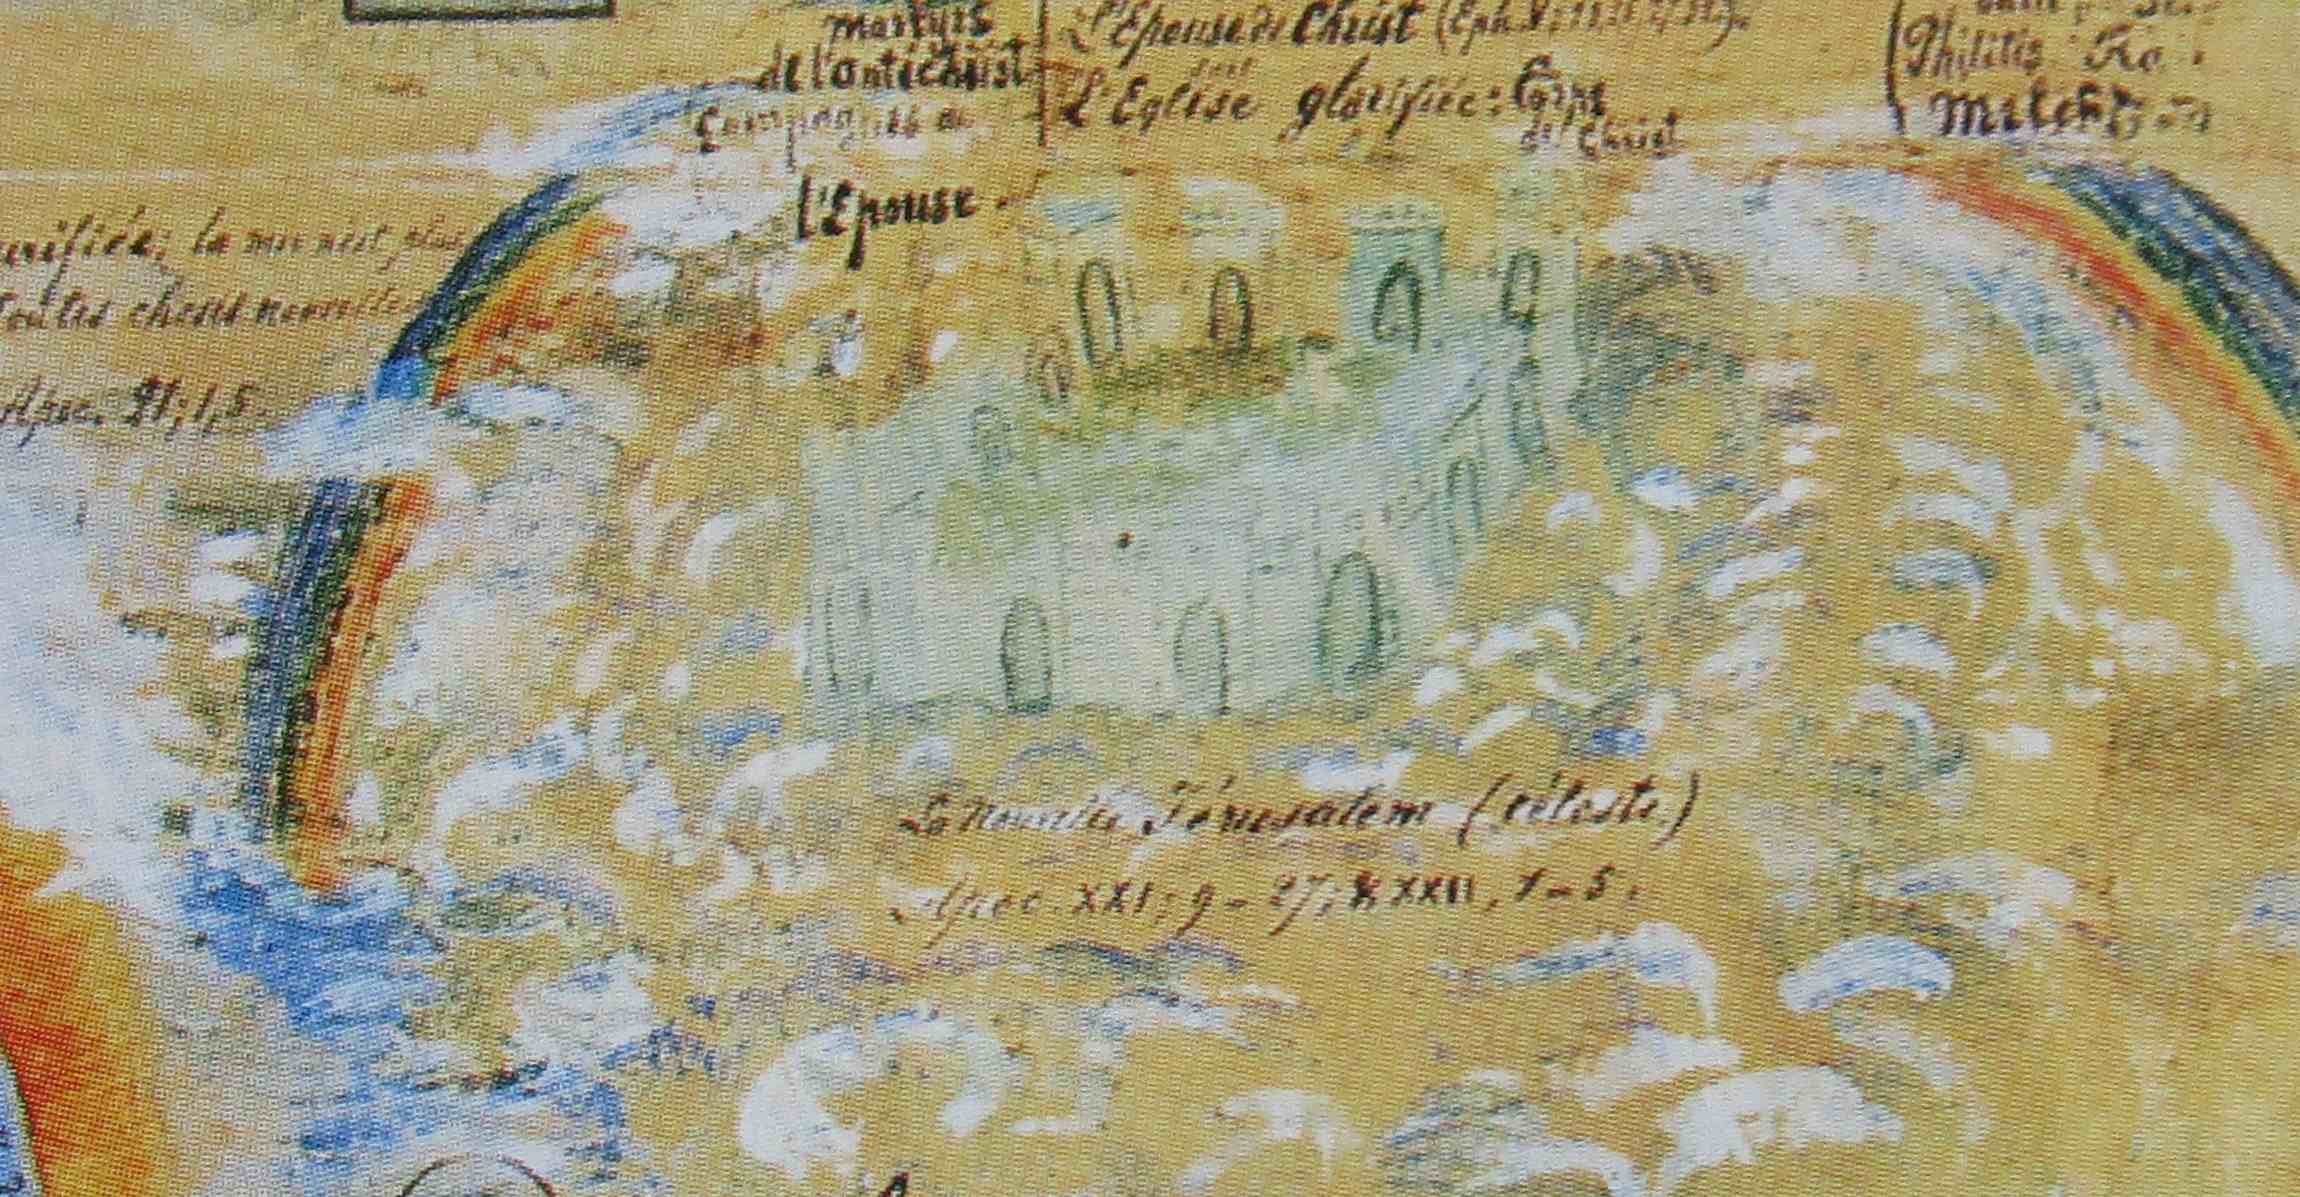 martyrs
de l'antéchrist
Compagnes de
l'Epouse.
L'Epouse de Christ (Eph. V;
soit
L'Eglise glorifiée: Corps
de Christ
Philitis
Melch
la mer n'est plus
toutes choses nouvelles
Apoc. 21; 1,5.
La Nouvelle Jérusalem (céleste.)
Apoc. XXI; 9-27; & XXII, 1-5.